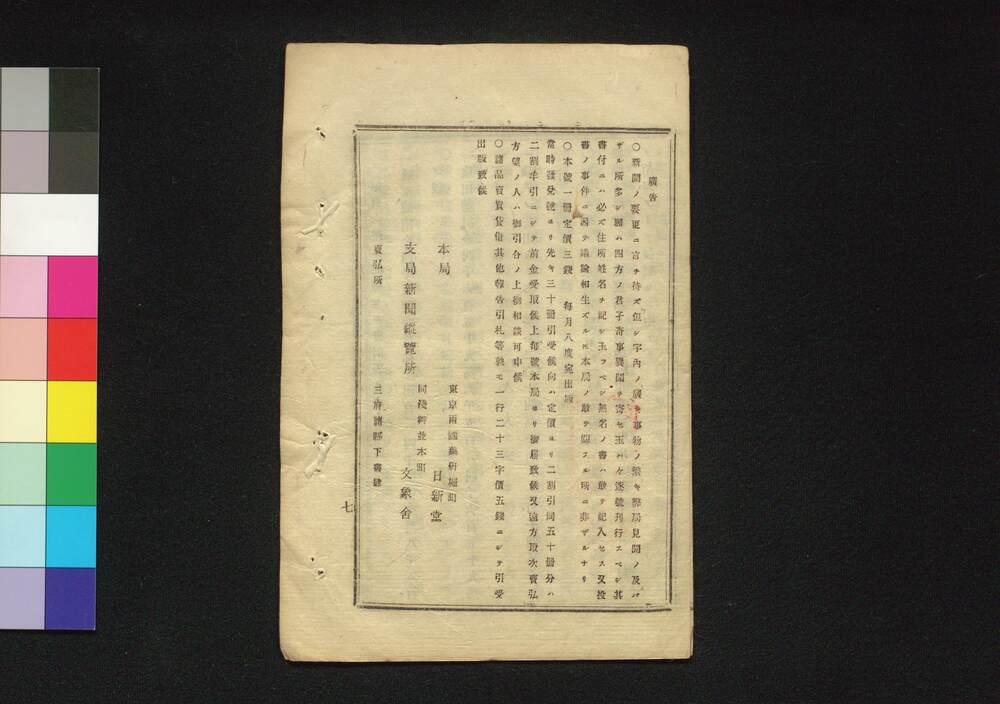 廣告
○新聞ノ要更ニ言ヲ待ズ但シ宇內ノ廣キ事物ノ繁キ弊局見聞ノ及バ
ザル所多シ願ハ四方ノ君子奇事異聞ヲ寄セ玉ハヾ逐號刊行スベシ其
書付ニハ必ズ住所姓名ヲ記シ玉フベシ無名ノ書ハ敢テ記入セス又投
書ノ事件ニ因テ議論相生ズルモ本局ノ敢テ關スル所ニ非ザルナリ
○本號一冊定價三錢 每月八度宛出版
當時發兌號ヨリ先キ三十冊引受候向ハ定價ヨリ二割引同五十冊分ハ
二割半引ニシテ前金受取候上每號本局ヨリ御屆致候又遠方取次賣弘
方望ノ人ハ御引合ノ上御相談可申候
○諸品賣買貸借其他報告引札等孰モ一行二十三字價五錢ニシテ引受
出版致候
本局 東京兩國藥硏堀町 日新堂
支局新聞縱覽所 同淺草並木町 文象舍
賣弘所 三府諸縣下書肆
七